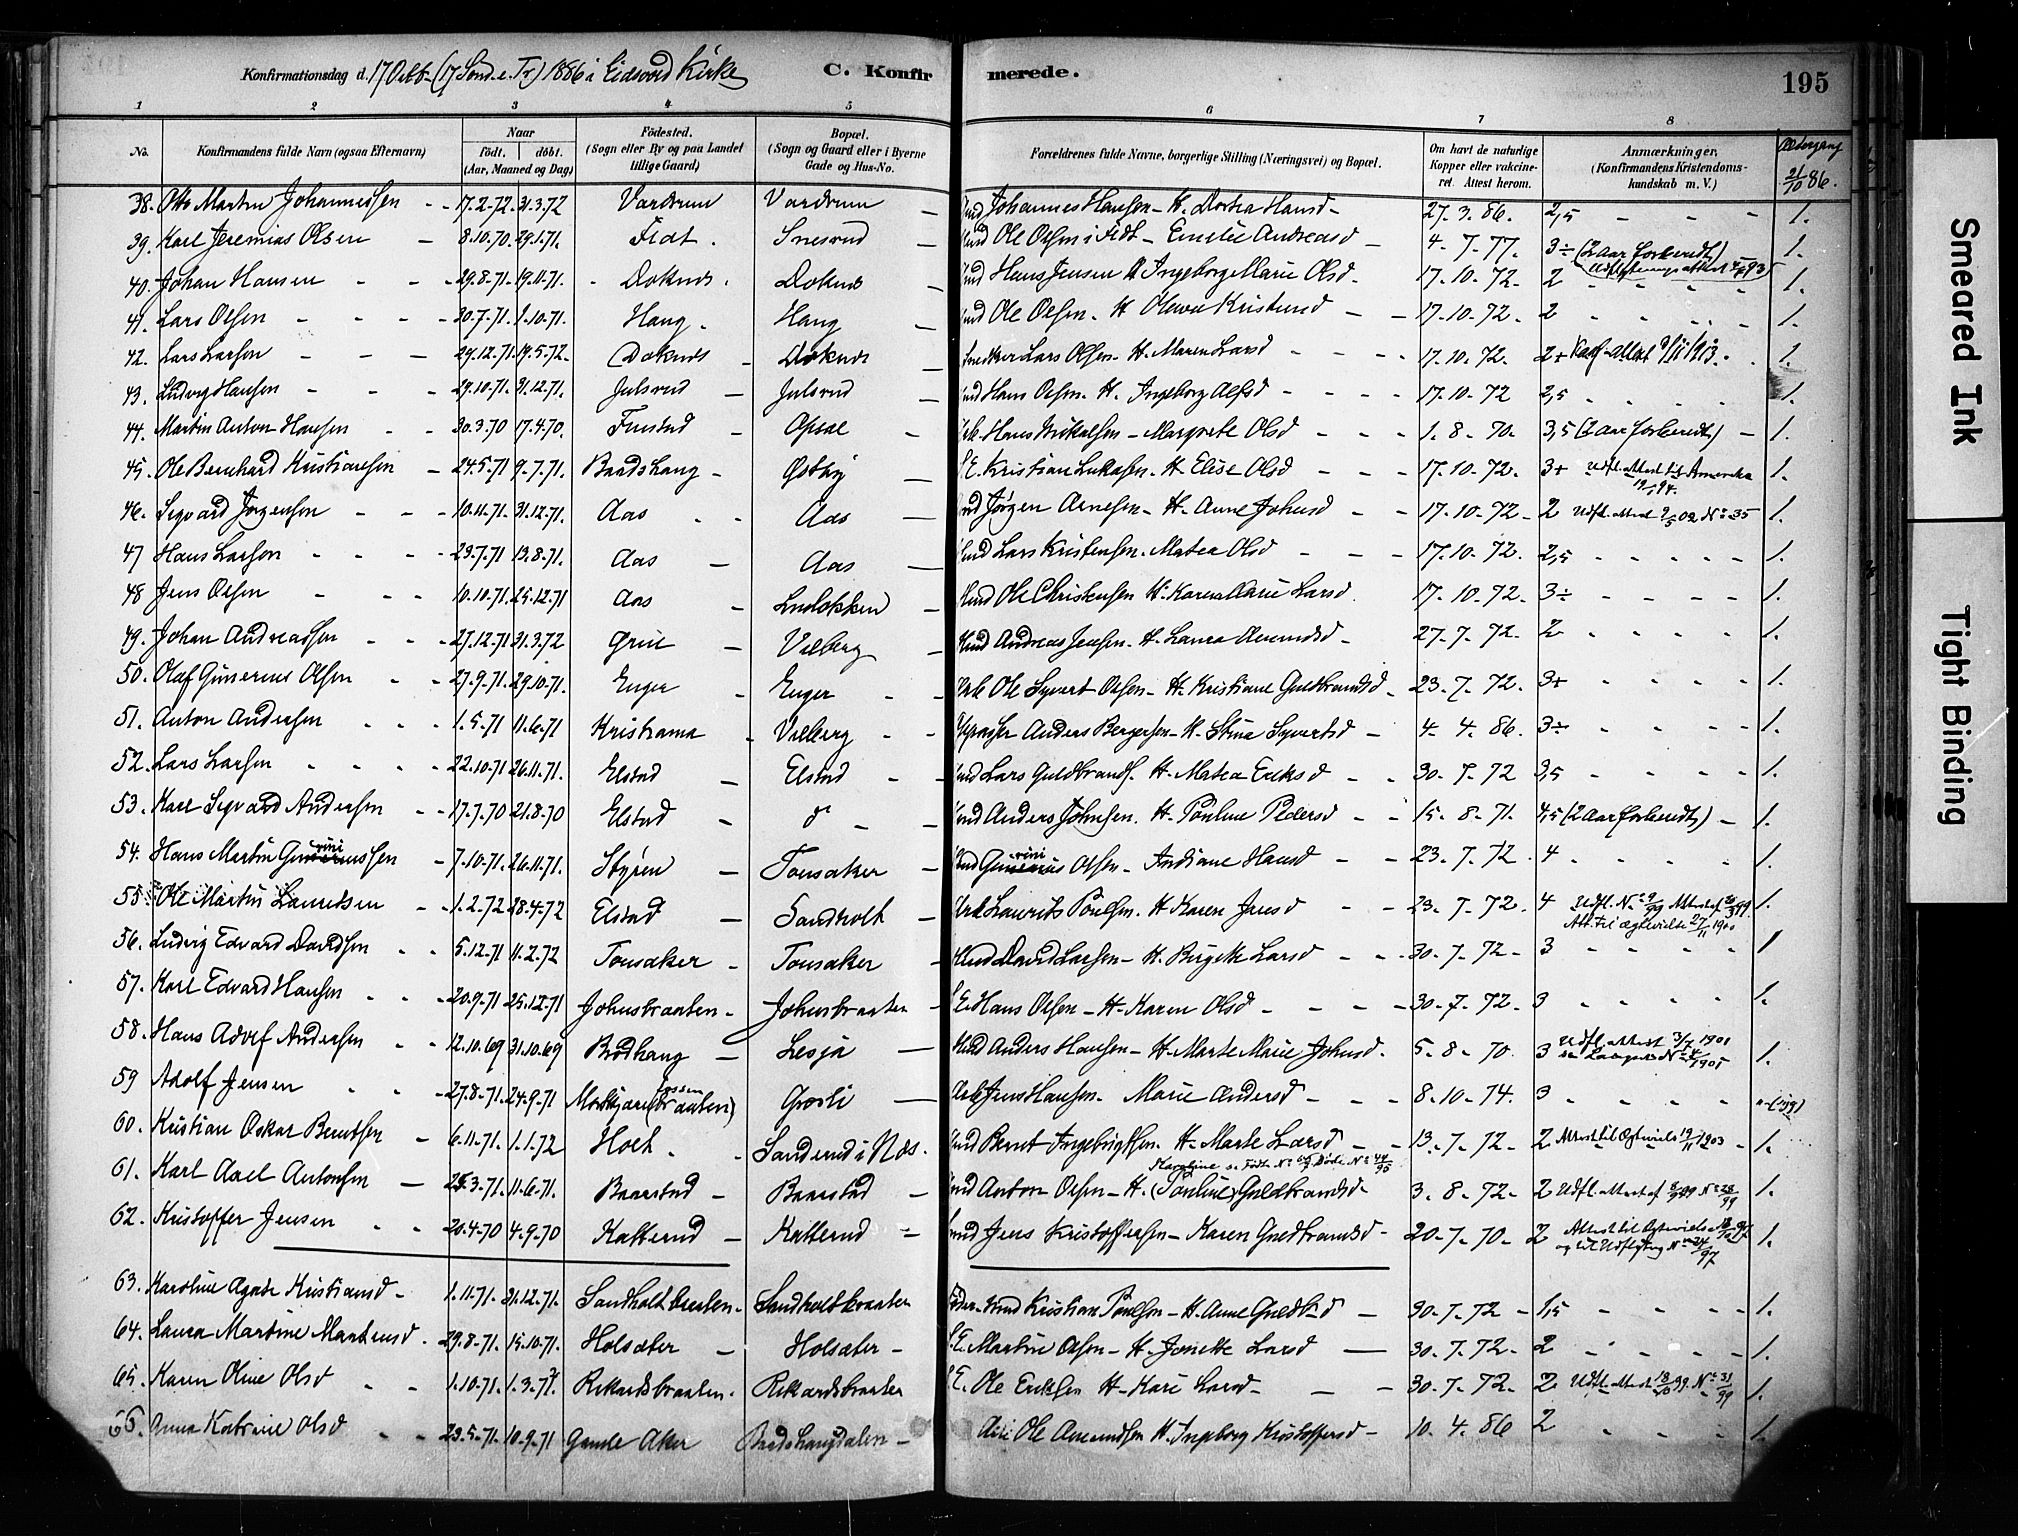 Konfirmationsdag d. 17 Octb. (17 Sønd. e. Tr.) 1886 i Eidsvold Kirke C. Konfirmerede. 195
1 2 3 4 5 6 7 8
No. Konfirmandens fulde Navn (ogsaa Efternavn) Naar født. døbt. (Aar, Maaned og Dag) Fødested. (Sogn eller By og paa Landet tillige Gaard) Bopæl. (Sogn og Gaard eller i Byerne Gade og Hus-No. Forældrenes fulde Navne, borgerlige Stilling (Næringsvei) og Bopæl. Om havt de naturlige Kopper eller vakcineret. Attest herom. Anmærkninger, (Konfirmandens Kristendomskundskab m. V.) Altergang 21/10 86.
38. Otto Martin Johannessen 17.2.72. 31.3.72 Vardrum Vardrum Johannes Hansen - H. Dortea Hansd 27.3.86. 2,5 1.
39. Karl Jeremias Olsen 8.10.70. 29.1.71. Fldt. Snesrud Ole Olsen i Fldt - Emilie Andreasd 4-7-77. 3÷ (2 Aar forberedt) 1.
40. Johan Hansen 29.8.71. 19.11.71. Doknes Doknes Hans Jensen H Ingeborg Marie Olsd 17.10.72. 2 1.
41. Lars Olsen 30.7.71. 1.10.71. Haug Haug Ole Olsen. H Olava Kristensd 17-10-72 2 1.
42. Lars Larsen 29.12.71. 19.5.72. Doknes Doknes Snedker Lars Olsen. H. Maren Larsd 17.10.72. 2+ 1.
43. Ludvig Hansen 29.10.71. 31.12.71. Julsrud Julsrud Hans Olsen. H. Ingeborg Olsd 17-10-72 2,5 1.
44. Martin Anton Hansen 30.3.70 17.4.70. Finstad Opsal Hans Mikalsen - Margrete Olsd 1-8-70. 3,5 (2 Aar forberedt) 1.
45. Ole Bernhard Kristiansen 24.5.71 9.7.71. Baadshaug Østby Kristian Lukasen. H Elise Olsd 17.10.72. 3+ Udfl. attest til Amerika 1.
46. Sigvard Jørgensen 10.11.71. 31.12.71. Aas Aas Jørgen Arnesen - H. Anne Johnsd 17.10.72 2 Udfl. Attest 9/5 02 No 35 1.
47 Hans Larsen 23.7.71 13.8.71. Aas Aas Lars Kristensen. Matea Olsd 17.10.72. 2,5 1.
48 Jens Olsen 10.10.71. 25.12.71 Aas Lundløkken Ole Christensen H. Karen Marie Larsd 17.10.72. 3÷ 1.
49. Johan Andreassen 27.12.71 31.3.72 Grue Vilberg Andreas Jensen. H. Laura Amundsd 27-7-72. 2 1.
50. Olaf Gunerius Olsen 27.9.71. 29.10.71. Enger Enger Ole Syvert Olsen - H. Kristiane Guldbrandsd 23.7.72. 3+ 1.
51. Anton Andersen 1.5.71 11.6.71 Kristiania Vilberg Anders Bergersen - H. Stina Syvertsd 4-4-86. 3÷ 1.
52. Lars Larsen 22.10.71 26.11.71. Elstad Elstad Lars Guldbrands. H. Matea Eriksd 30-7-72 3,5 1.
53. Karl Sigvard Andersen 17.7.70 21.8.70 Elstad do Anders Johnsen. H. Pauline Pedersd 15-8-71. 4,5 (2 Aar forberedt) 1.
54. Hans Martin Guneriussen 7.10.71. 26.11.71. Styren Tonsaker Gunerius Olsen. Andiane Hansd 23.7.72. 4 1.
55. Ole Martin Lauritsen 1.2.72 28.4.72 Elstad Sandholt Laurits Poulsen. H Karen Jensd 23-7-72. 4 Udfl. No 9/99 Att. til Ægtevielse 27/11 1900 1.
56. Ludvig Edvard Davidsen 5.12.71 11.2.72 Tonsaker Tonsaker David Larsen - H. Birgitte Larsd 30-7-72 3 1
57. Karl Edvard Hansen 20.9.71 25.12.71 Johnsbraaten Johnsbraaten Hans Olsen - H. Karen Olsd 30-7-72. 3 1.
58. Hans Adolf Andersen 12.10.69 31.10.69 Brødhaug Lesja Anders Hansen - H. Marte Marie Johnsd 5-8-70. 3 Udfl. attest 3/7 1901 1.
59 Adolf Jensen 27.8.71. 24.9.71 Grøsli Jens Hansen. Marie Andersd 8-10-74. 3
60. Kristian Oskar Berntsen 6.11.71. 1.1.72 Holt Sanderud i Næs. Bernt Ingebrigtsen. H. Marte Larsd 13.7.72 2 Attest til Ægteviels 19/11 1903 1.
61. Karl Axel Antonsen 25.3.71. 11.6.71. Baarstad Baarstad Anton Olsen - H. (Pauline) Guldbrandsd 3.8.72 2 Udfl. attest af No 28/99 1.
62. Kristoffer Jensen 20.4.70 4.9.70 Katterud Katterud Jens Kristoffersen - Karen Guldbrandsd 20-7-70. 2 Attest til Ægteviels og til Udflytting No 24/97 1.
63. Karoline Agate Kristiansd 1.11.71. 31.12.71. Sandholtbraaten. Sandholtbraaten Kristian Poulsen - H. Anne Guldb.d 30-7-72 1,5 1.
64. Laura Martine Martinsd 29.8.71 15.10.71. Holsæter Holsæter Martin Olsen - H. Jonette Larsd 30.7.72. 2 1.
65. Karen Oline Olsd 1.10.71. Rikardsbraaten. Rikardsbraaten Ole Eriksen H. Kari Larsd 30-7-72 2 Udfl. Attest 18/10 99. No 31/99 1.
66. Anna Katrine Olsd 23.5.71. 10.9.71 Gamle Aker Baadshaugdalen Ole Amundsen H. Ingeborg Kristoffersd 10.4.86 2 1.
Smeared Ink
Tight Binding